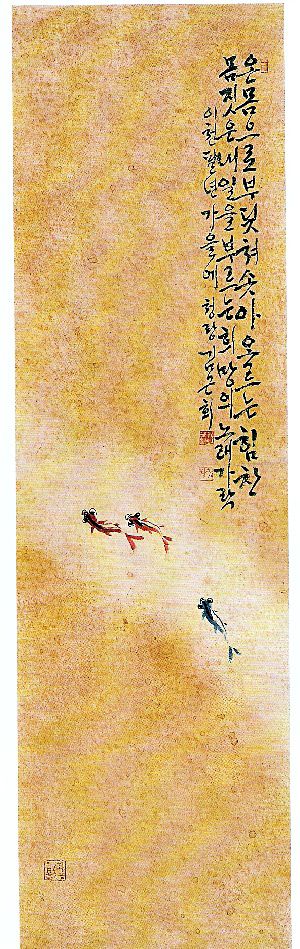 온몸으로 부딪쳐 솟아오르는 힘찬
몸짓은 내일을 부르는 희망의 노래가락
이천팔년 가을에 청랑 김은희